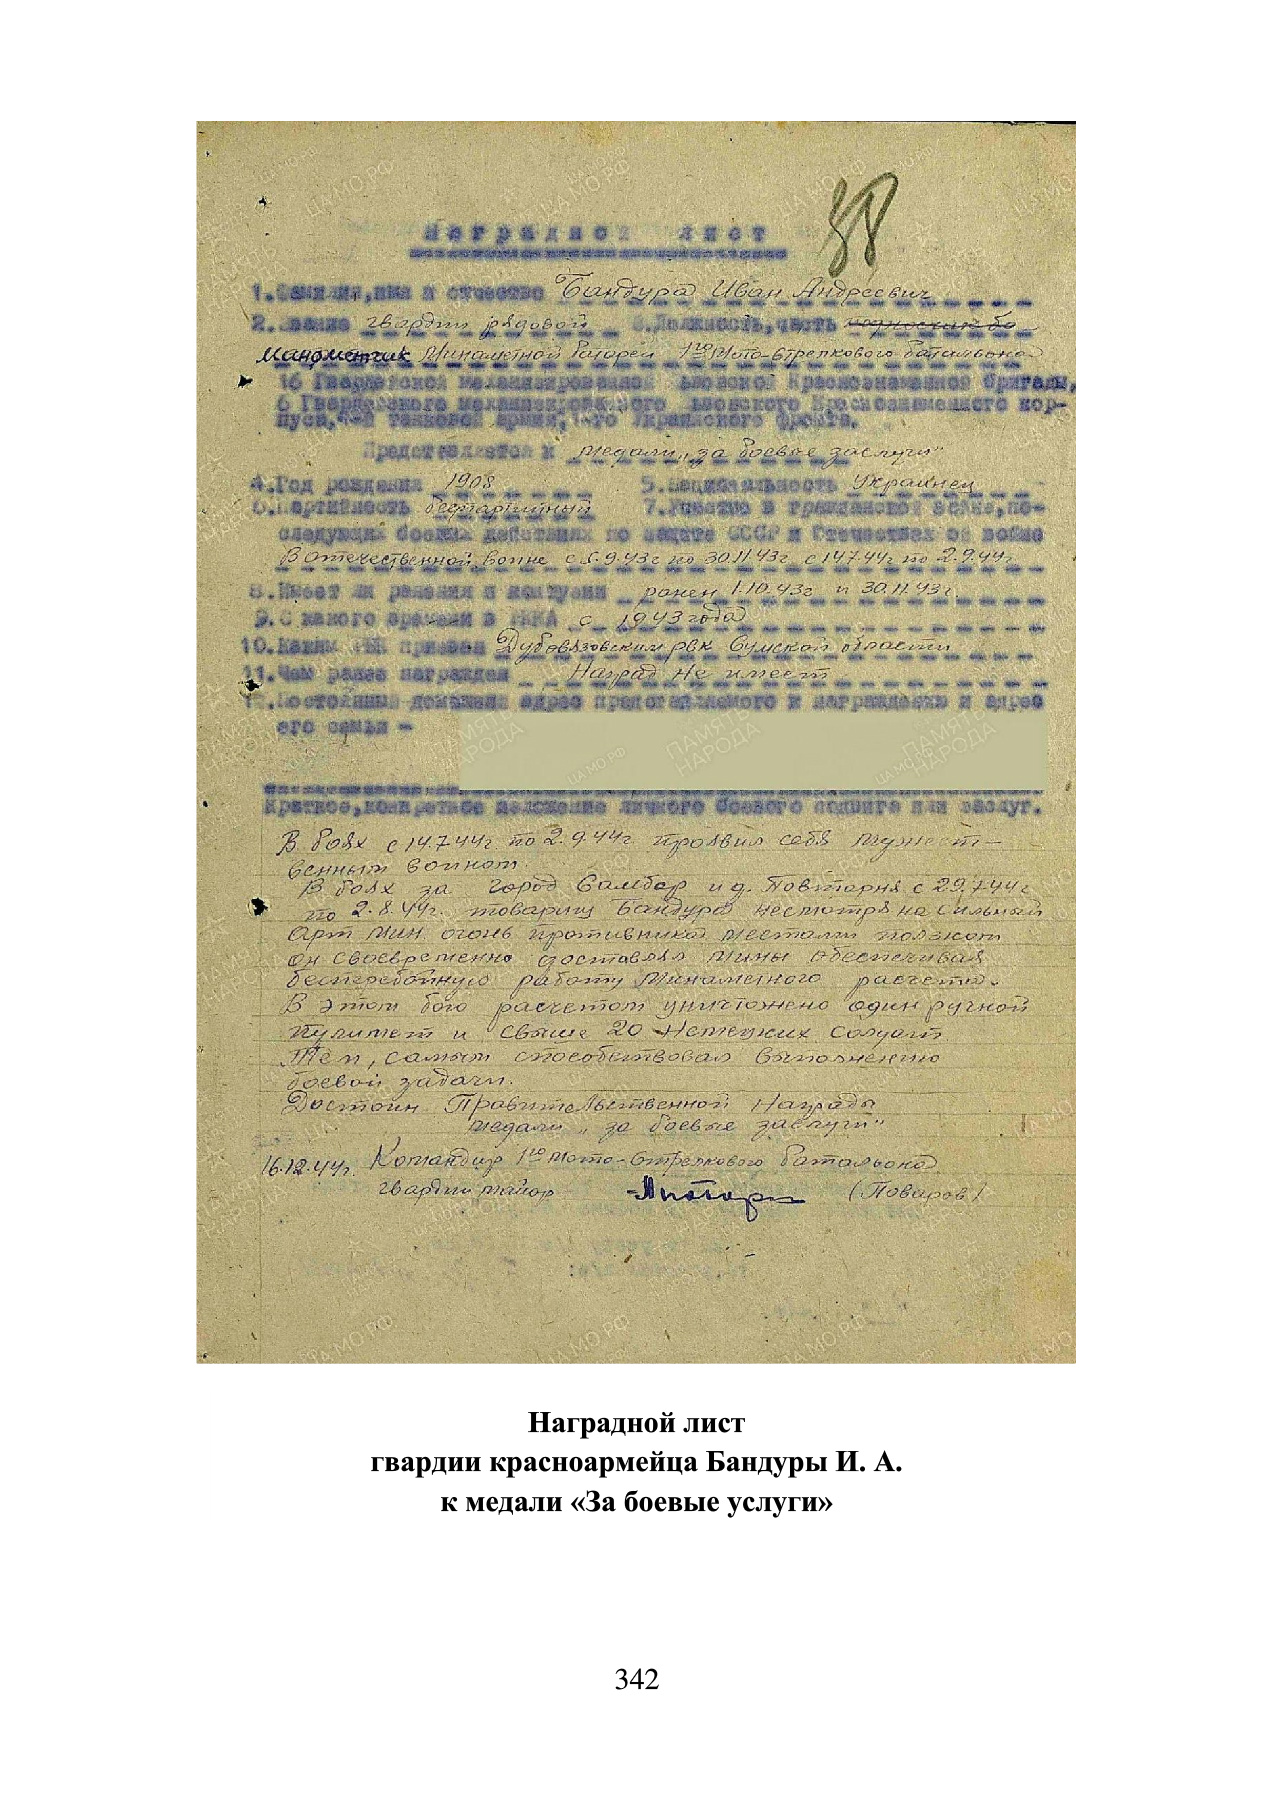 38
Наградной лист
1.Фамилия,имя и отчество Бандура Иван Андреевич
2.Звание гвардии рядовой 3.Должность,часть подносчик бо
Минометной батареи 1го Мото-стрелкового батальона
16 Гвардейской механизированной Львовской Краснознаменной бригады,
6 Гвардейского механизированного Львовского Краснознаменного кор-
пуса,4-й танковой армии,1-го Украинского фронта.
Представляется к медали „за боевые заслуги"
4.Год рождения 1908 5.Национальность Украинец
6.Партийность беспартийный 7.Участие в гражданской войне,по-
следующих боевых действиях по защите СССР и Отечествен ой войне
В отечественной войне с 5.9.43г по 30.11.43г с 14.7.44г по 2.9.44г.
8.Имеет ли ранения и контузии ранен 1.10.43г и 30.11.43г
9.С какого времени в РККА с 1943 года
10.Каким РВК призван Дубовязовским рвк Сумской области
11.Чем ранее награжден Наград не имеет
12.Постоянный домашний адрес представляемого к награждению и адрес
его семьи -
Краткое,конкретное изложение личного боевого подвига или заслуг.
В боях с 14.7.44г по 2.9.44г. проявил себя мужест-
венным воином.
В боях за город Самбор и д. Повторня с 29.7.44г
по 2.8.44г. товарищ Бандура несмотря на сильный
арт мин. огонь противника местами ползком
он своевременно доставлял мины обеспечивая
бесперебойную работу минаметного расчета.
В этом бою расчетом уничтожено один ручной
пулимет и свыше 20 немецких солдат
Тем, самым способствовал выполнению
боевой задачи.
Достоин Правительственной Награды
медали „за боевые заслуги"
16.12.44г. Командир 1го Мото-стрелкового батальона
гвардии майор (Поваров)
Наградной лист
гвардии красноармейца Бандуры И. А.
к медали «За боевые услуги»
342